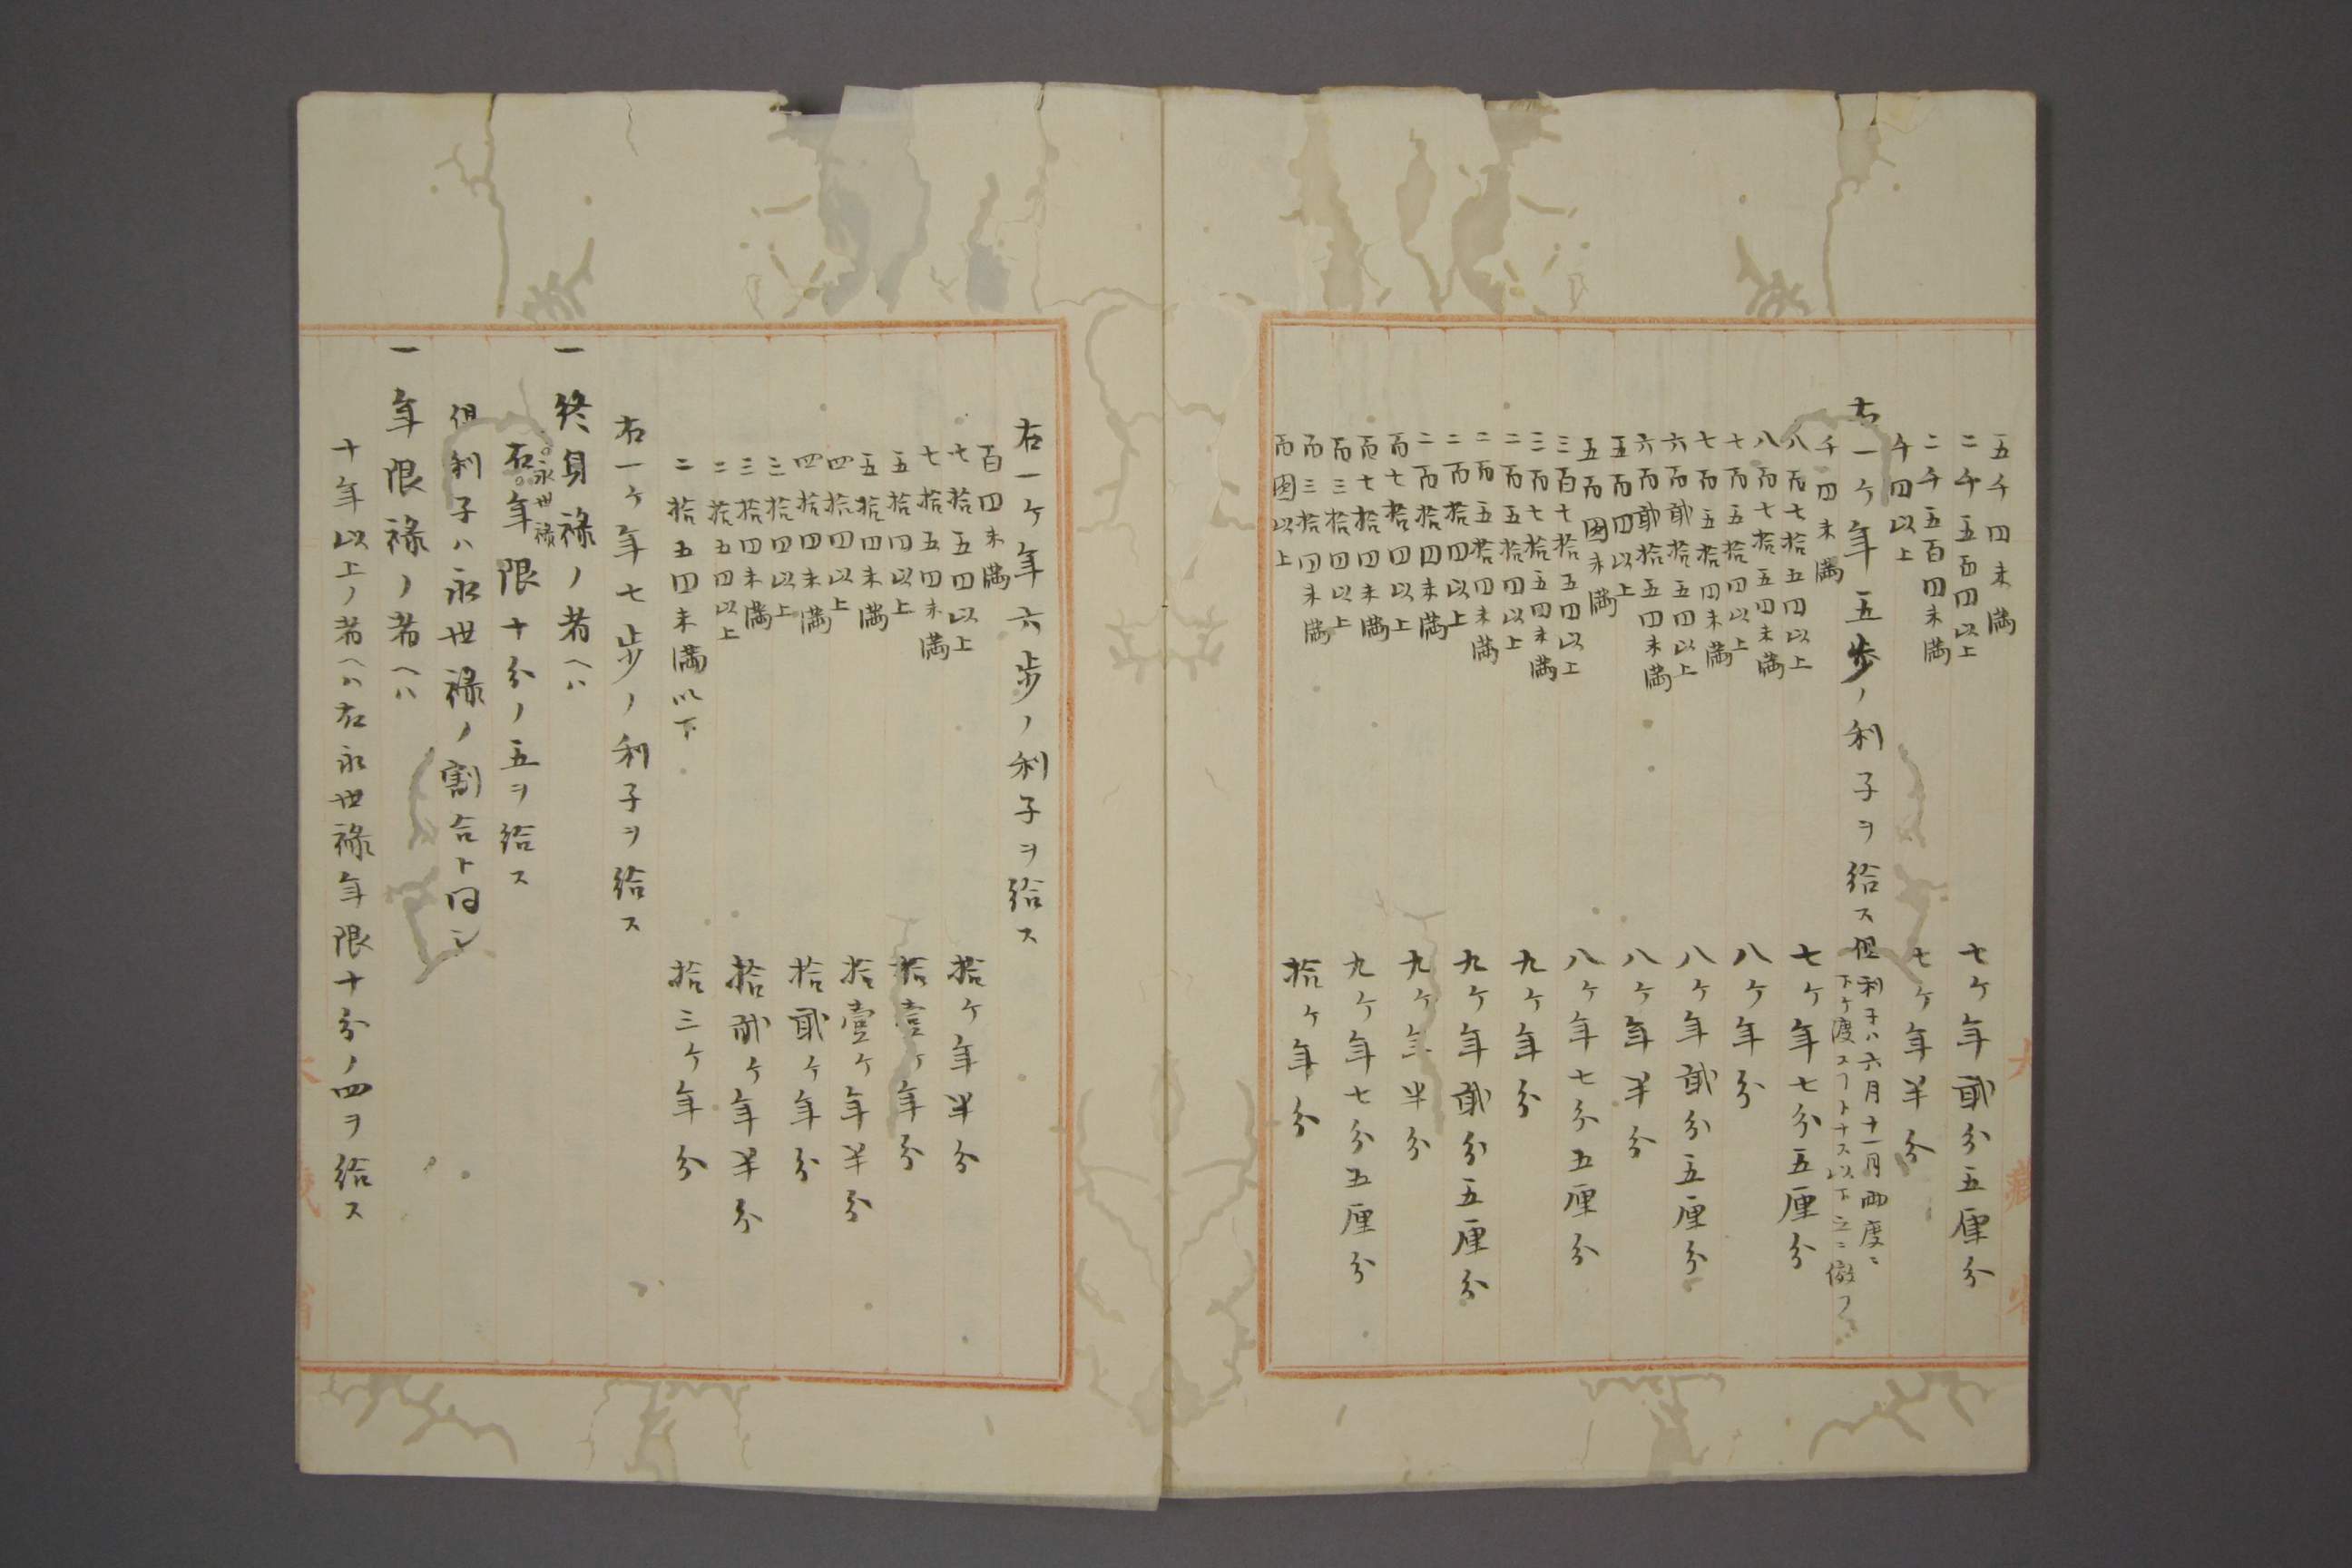 大藏省
五千円未満
二千五百円以上 七ヶ年貳分五厘分
二千五百円未満
千円以上 七ヶ年半分
右一ヶ年五歩ノ利子ヲ給ス 但利子ハ六月十一月両度ニ
下ケ渡スヿトナス以下之ニ倣フ
千円未満
八百七拾五円以上 七ヶ年七分五厘分
八百七拾五円未満
七百五拾円以上 八ヶ年分
七百五拾円未満
六百貳拾五円以上 八ヶ年貳分五厘分
六百貳拾五円未満
五百円以上 八ヶ年半分
五百圓未満
三百七十五円以上 八ヶ年七分五厘分
三百七拾五円未満
二百五拾円以上 九ヶ年分
二百五拾円未満
二百拾円以上 九ヶ年貳分五厘分
二百拾円未満
百七拾円以上 九ヶ年半分
百七拾円未満
百三拾円以上 九ヶ年七分五厘分
百三拾円未満
百圓以上 拾ヶ年分
右一ヶ年六歩ノ利子ヲ給ス
百円未満
七拾五円以上 拾ヶ年半分
七拾五円未満
五拾円以上 拾壹ヶ年分
五拾円未満
四拾円以上 拾壹ヶ年半分
四拾円未満
三拾円以上 拾貳ヶ年分
三拾円未満
二拾五円以上 拾貳ヶ年半分
二拾五円未満以下 拾三ヶ年分
右一ヶ年七歩ノ利子ヲ給ス
一終身禄ノ者ヘハ
右永世禄年限十分ノ五ヲ給ス
但利子ハ永世禄ノ割合ト同シ
一年限禄ノ者ヘハ
十年以上ノ者ヘハ右永世禄年限十分ノ四ヲ給ス
大藏省